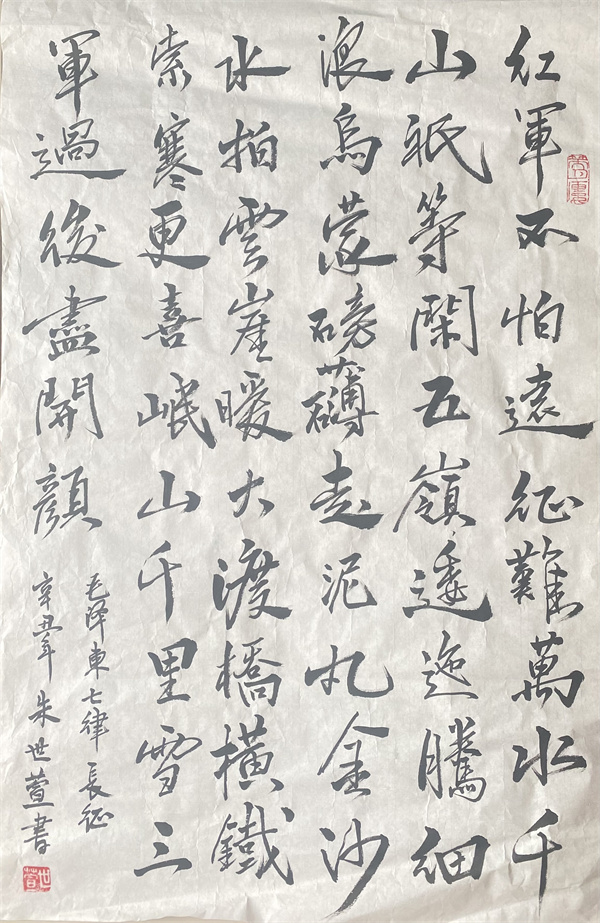 紅軍不怕遠征難萬水千
山祇等閑五嶺逶迤騰細
浪烏蒙磅礴走泥丸金沙
水拍雲崖暖大渡橋橫鐵
索寒更喜岷山千里雪三
軍過後盡開顏
毛泽東七律長征
辛丑年朱世萱書
世萱